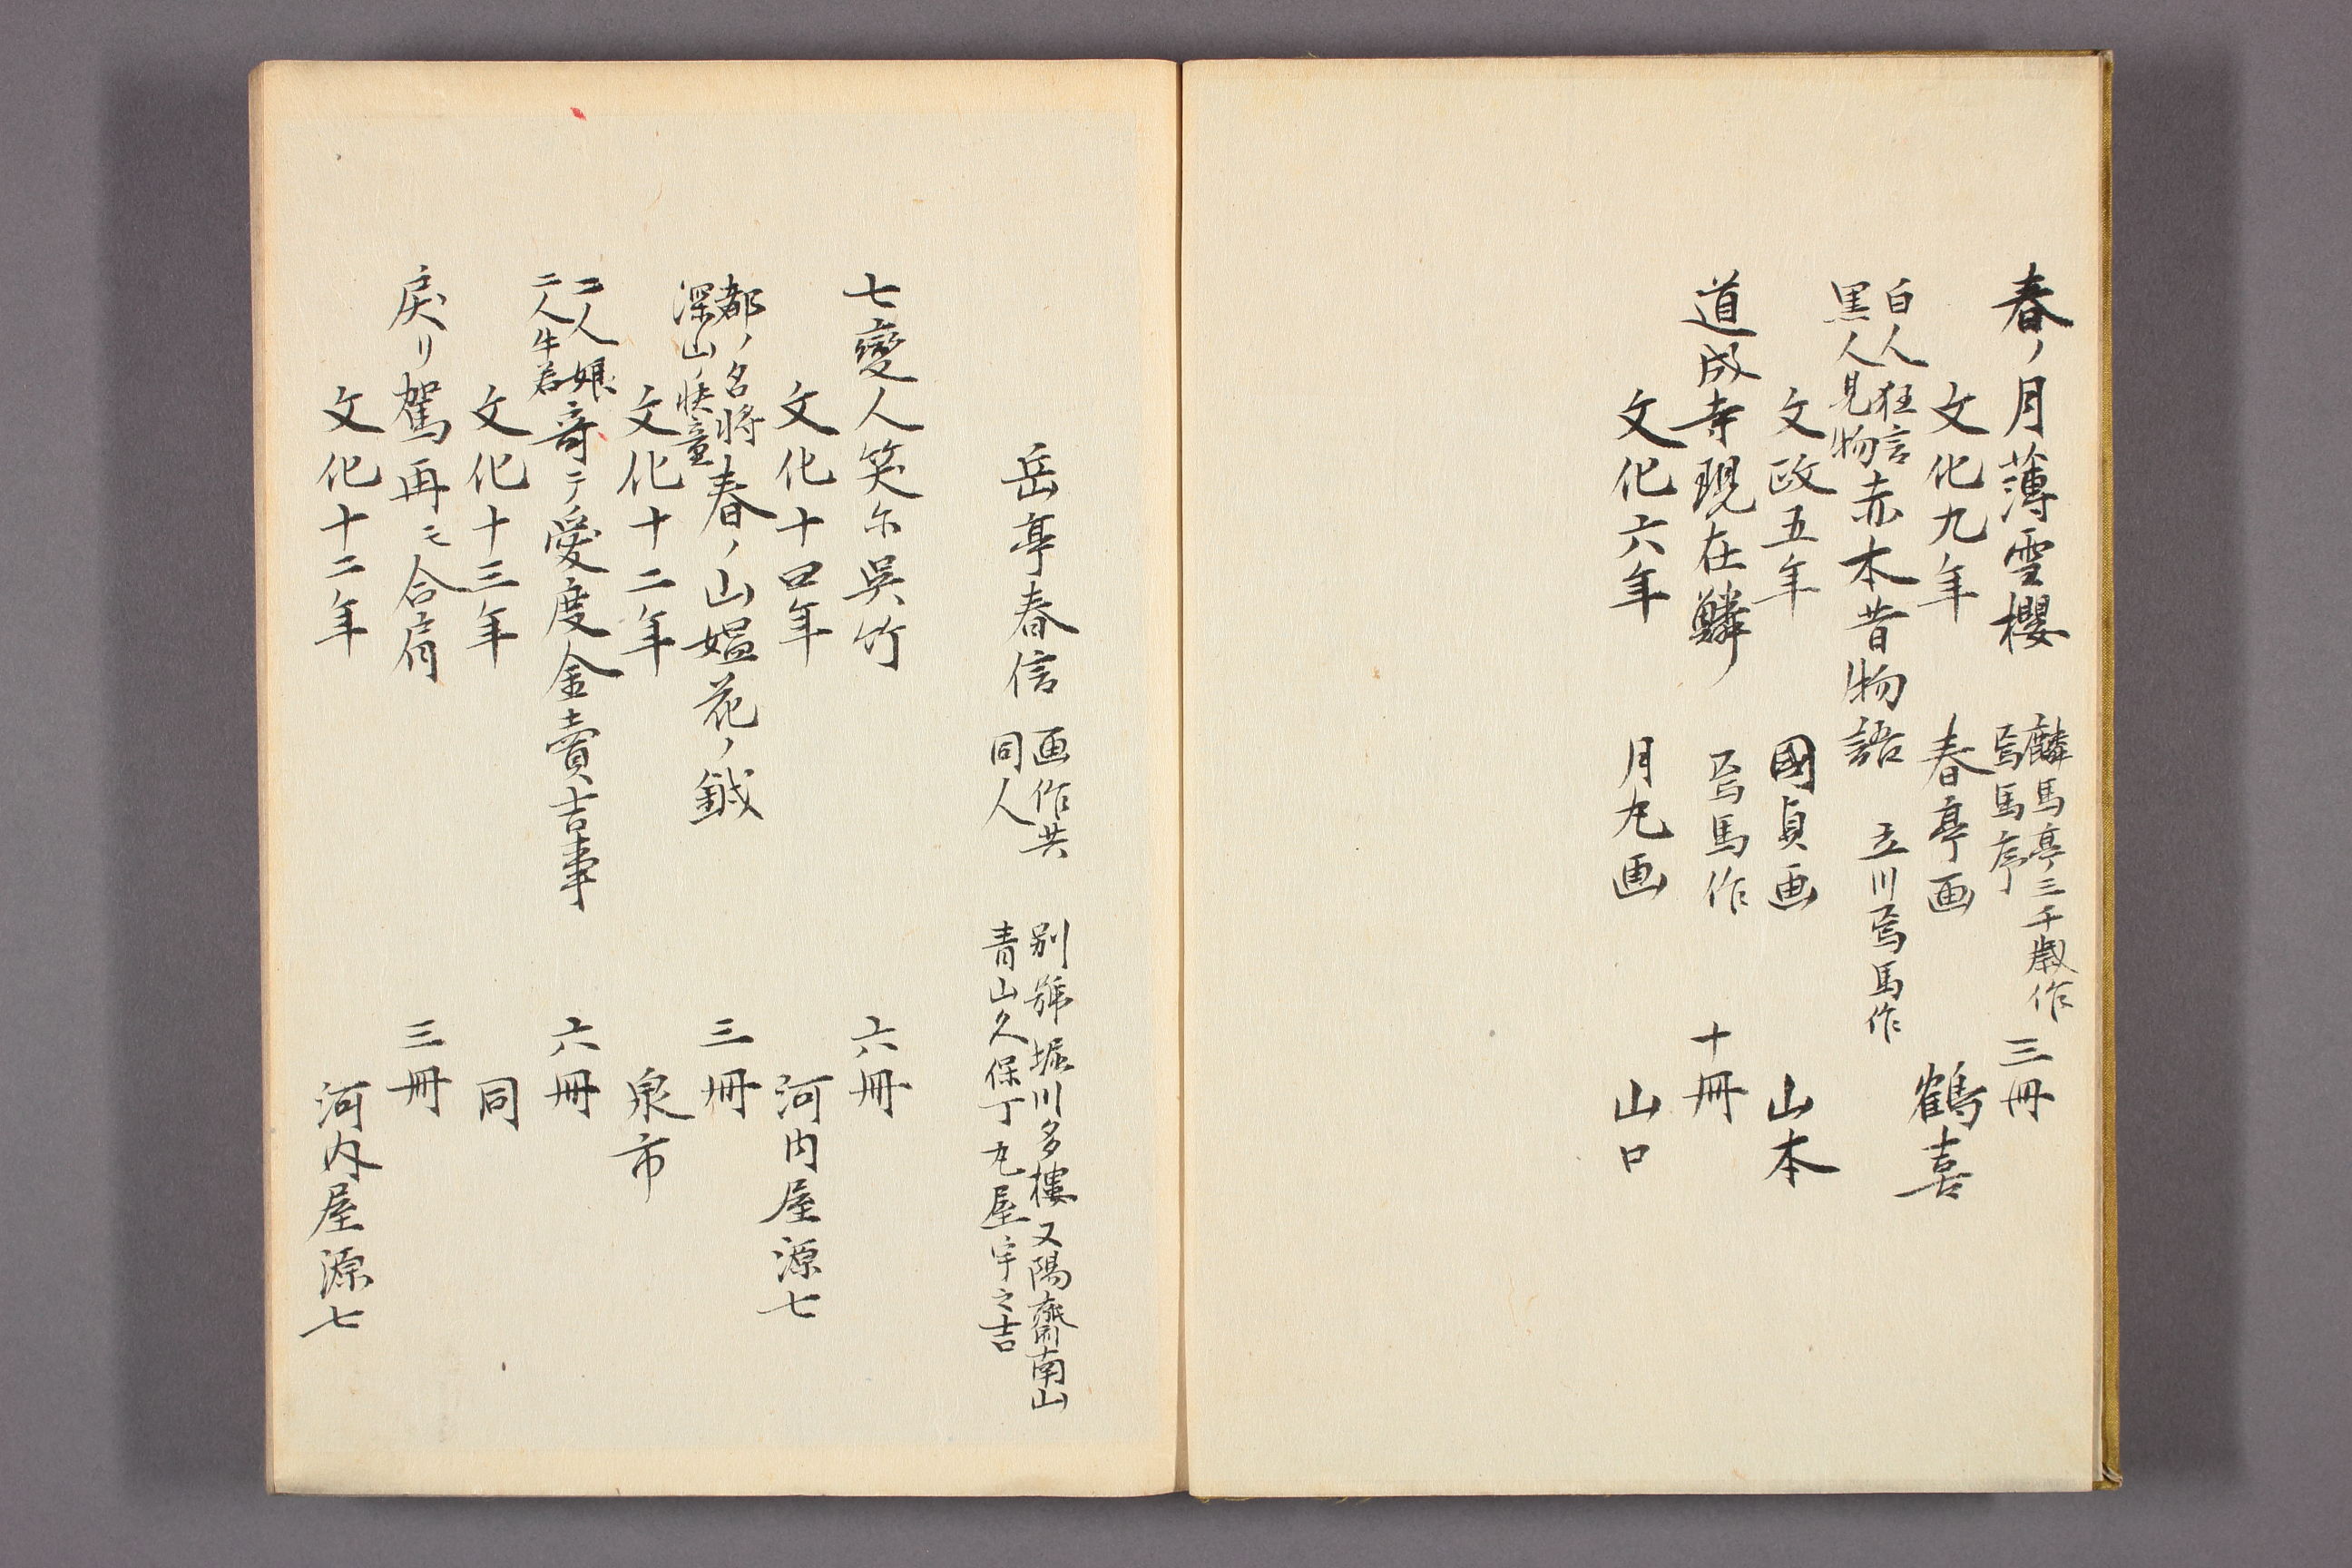 春ノ月薄雪櫻 麟馬亭三千歳作 三冊
焉馬序
文化九年 春亭画 鶴喜
白人狂言
黒人見物 赤本昔物語 立川焉馬作
文政五年 國貞画 山本
道成寺現在鱗 焉馬作 十冊
文化六年 月丸画 山口
岳亭春信 画作共 別號堀川多樓又陽齋南山
同人 青山久保丁丸屋宇之吉
七變人笑尓呉竹 六冊
文化十四年 河内屋源七
都ノ名將
深山ノ快童 春ノ山媼花ノ鉞 三冊
文化十二年 泉市
二人娘
二人牛若 奇テ愛度金賣吉事 六冊
文化十三年 同
戻リ駕再モ合肩 三冊
文化十二年 河内屋源七